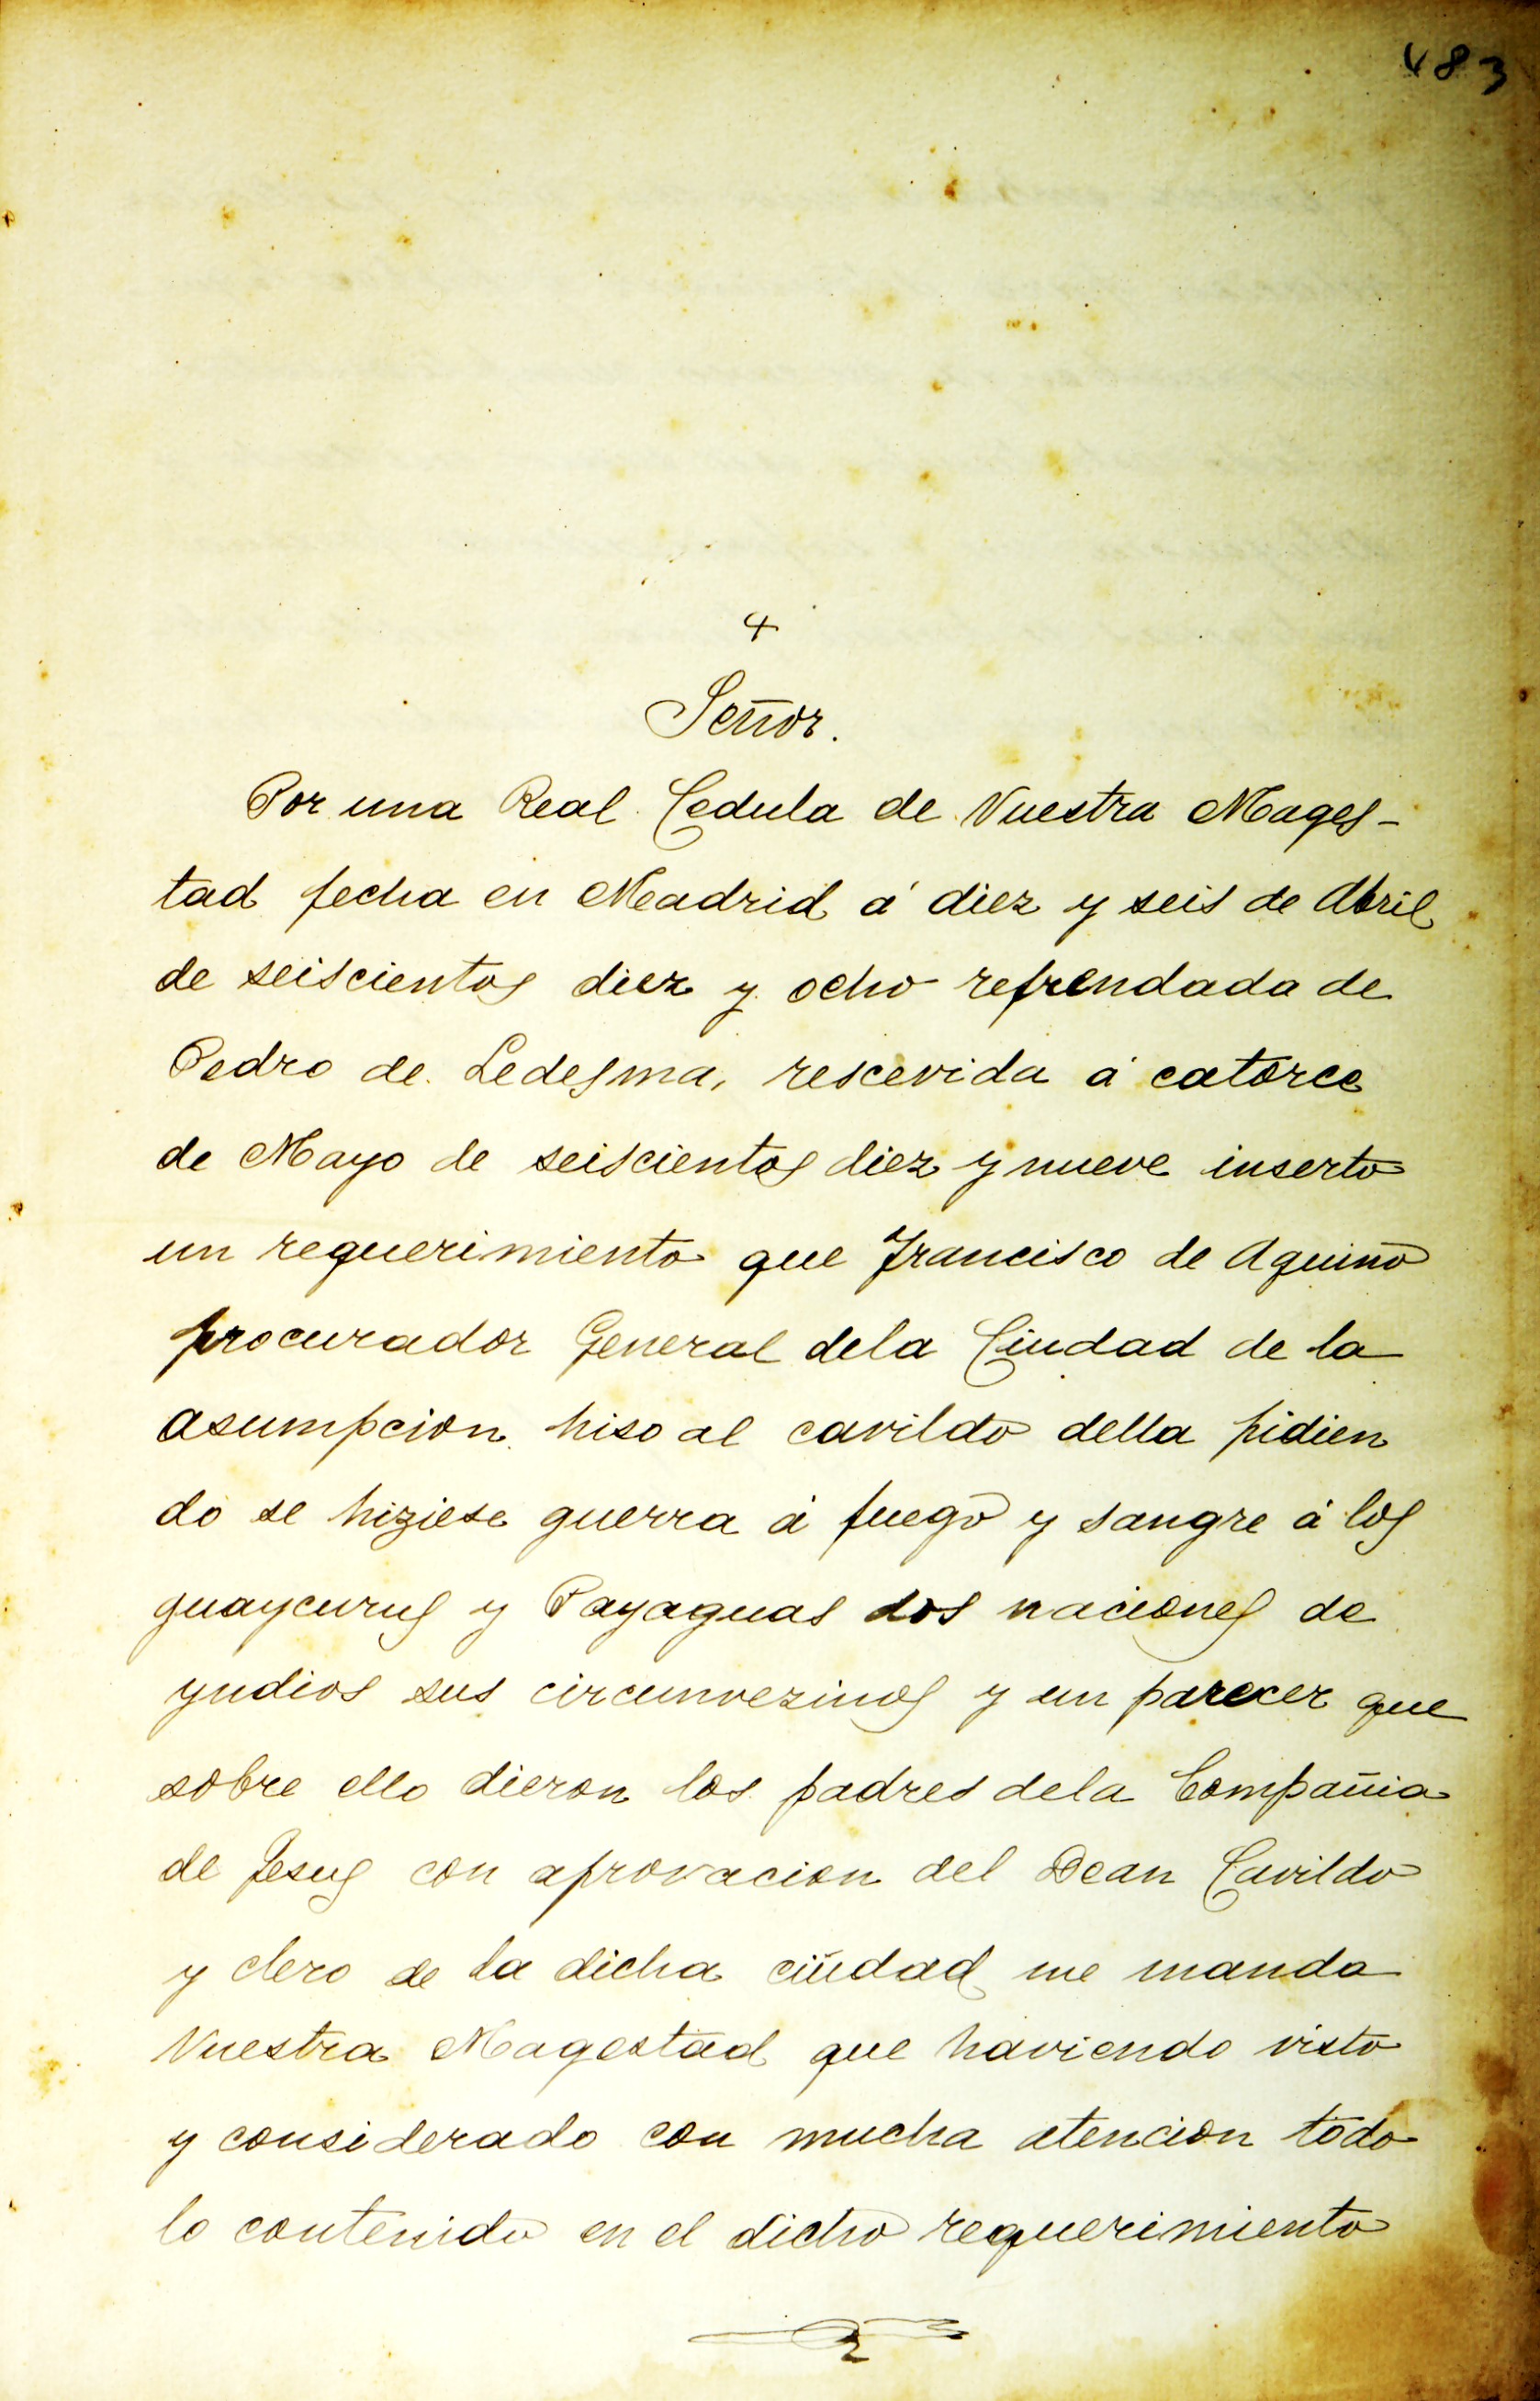 483
+
Señor.
Por una Real Cedula de Vuestra Mages-
tad fecha en Madrid á diez y seis de Abril
de seiscientos diez y ocho refrendada de
Pedro de Ledesma, rescevida á catorce
de Mayo de seiscientos diez y nueve inserto
un requerimiento que Francisco de Aquino
procurador General dela Ciudad de la
asumpcion hiso al cavildo della pidien
do se hiziese guerra á fuego y sangre á los
guaycurus y Payaguas dos naciones de
yndios sus circunvezinos y un parecer que
sobre ello dieron los padres dela Compañia
de Jesus con aprovacion del Dean Cavildo
y clero de la dicha ciudad me manda
Vuestra Magestad que haviendo visto
y considerado con mucha atencion todo
lo contenido en el dicho requerimiento